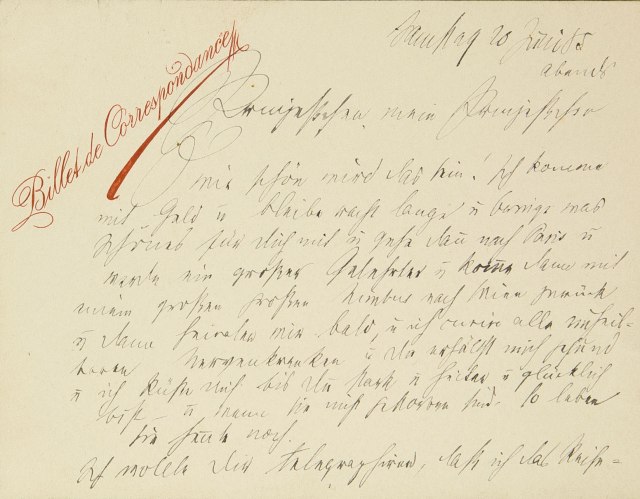 Billet de Correspondance
Samstag 20 Juni 85
abends
Prinzeßchen, mein Prinzeßchen
wie schön wird das sein! Ich komme
mit Geld u bleibe recht lange u bringe was
Schönes für Dich mit u gehe dann nach Paris u
werde ein großer Gelehrter u komme dann mit
einem großen großen Nimbus nach Wien zurück
u dann heiraten wir bald u ich curire alle unheil-
baren Nervenkranken u Du erhältst mich gesund
u ich küsse Dich bis Du stark u heiter u glücklich
bist – u wenn sie nicht gestorben sind, so leben
sie heute noch.
Ich wollte Dir telegraphiren, daß ich das Reise-